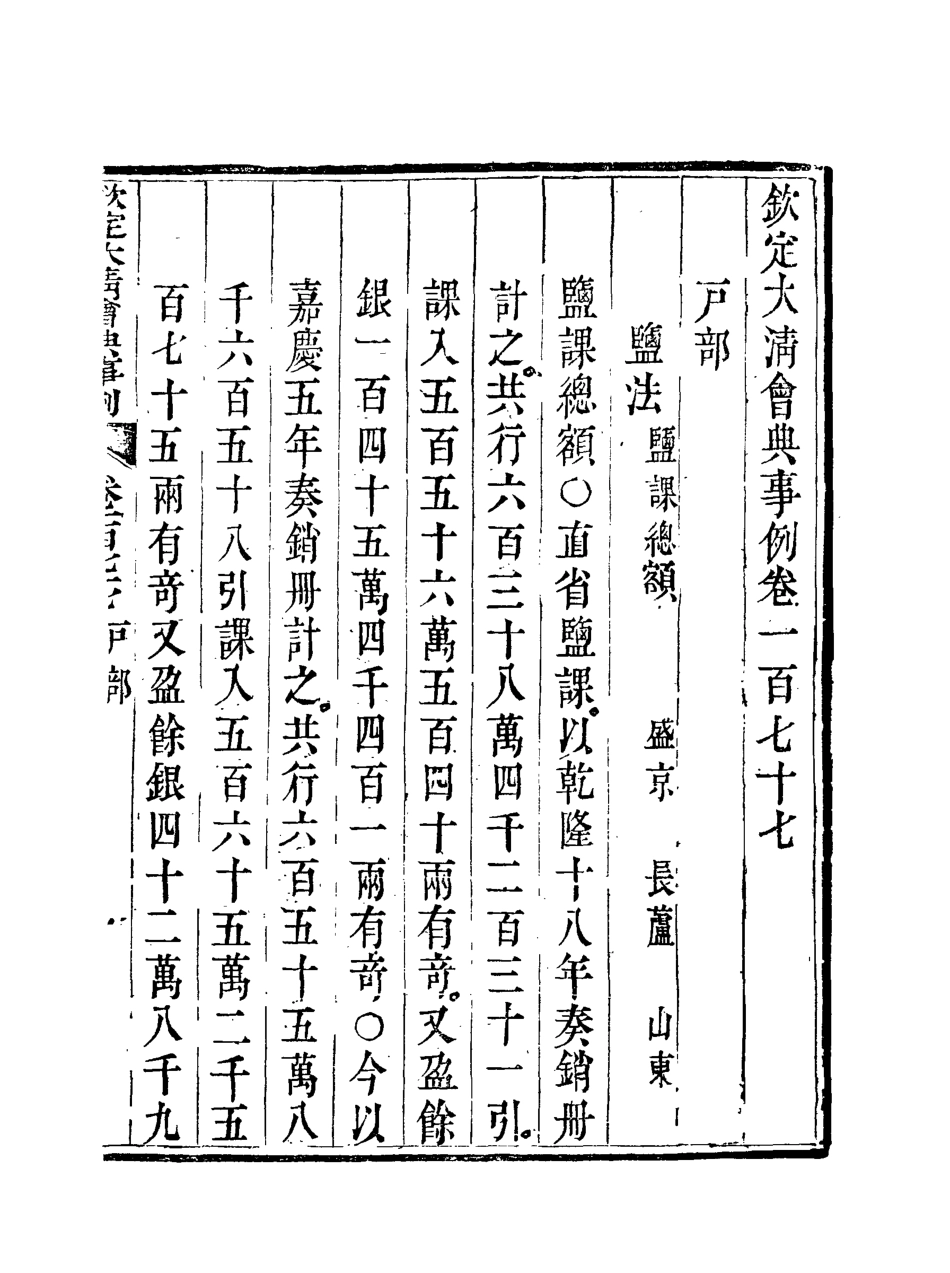 欽定大淸會典事例卷一百七十七
戸部
鹽法 鹽課總額 盛京 長蘆 山東
鹽課總額○直省鹽課。以乾隆十八年奏銷册
計之。共行六百三十八萬四千二百三十一引。
課入五百五十六萬五百四十兩有竒。又盈餘
銀一百四十五萬四千四百一兩有竒○今以
嘉慶五年奏銷册計之。共行六百五十五萬八
千六百五十八引課入五百六十五萬二千五
百七十五兩有竒又盈餘銀四十二萬八千九
欽定大淸會典事例 卷一百七十七 戸部